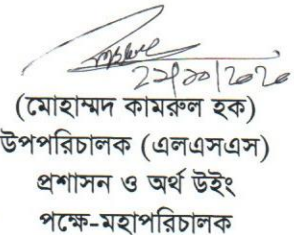 ২২/১০/২০২০
(মোহাম্মদ কামরুল হক)
উপপরিচালক (এলএসএস)
প্রশাসন ও অর্থ উইং
পক্ষে-মহাপরিচালক